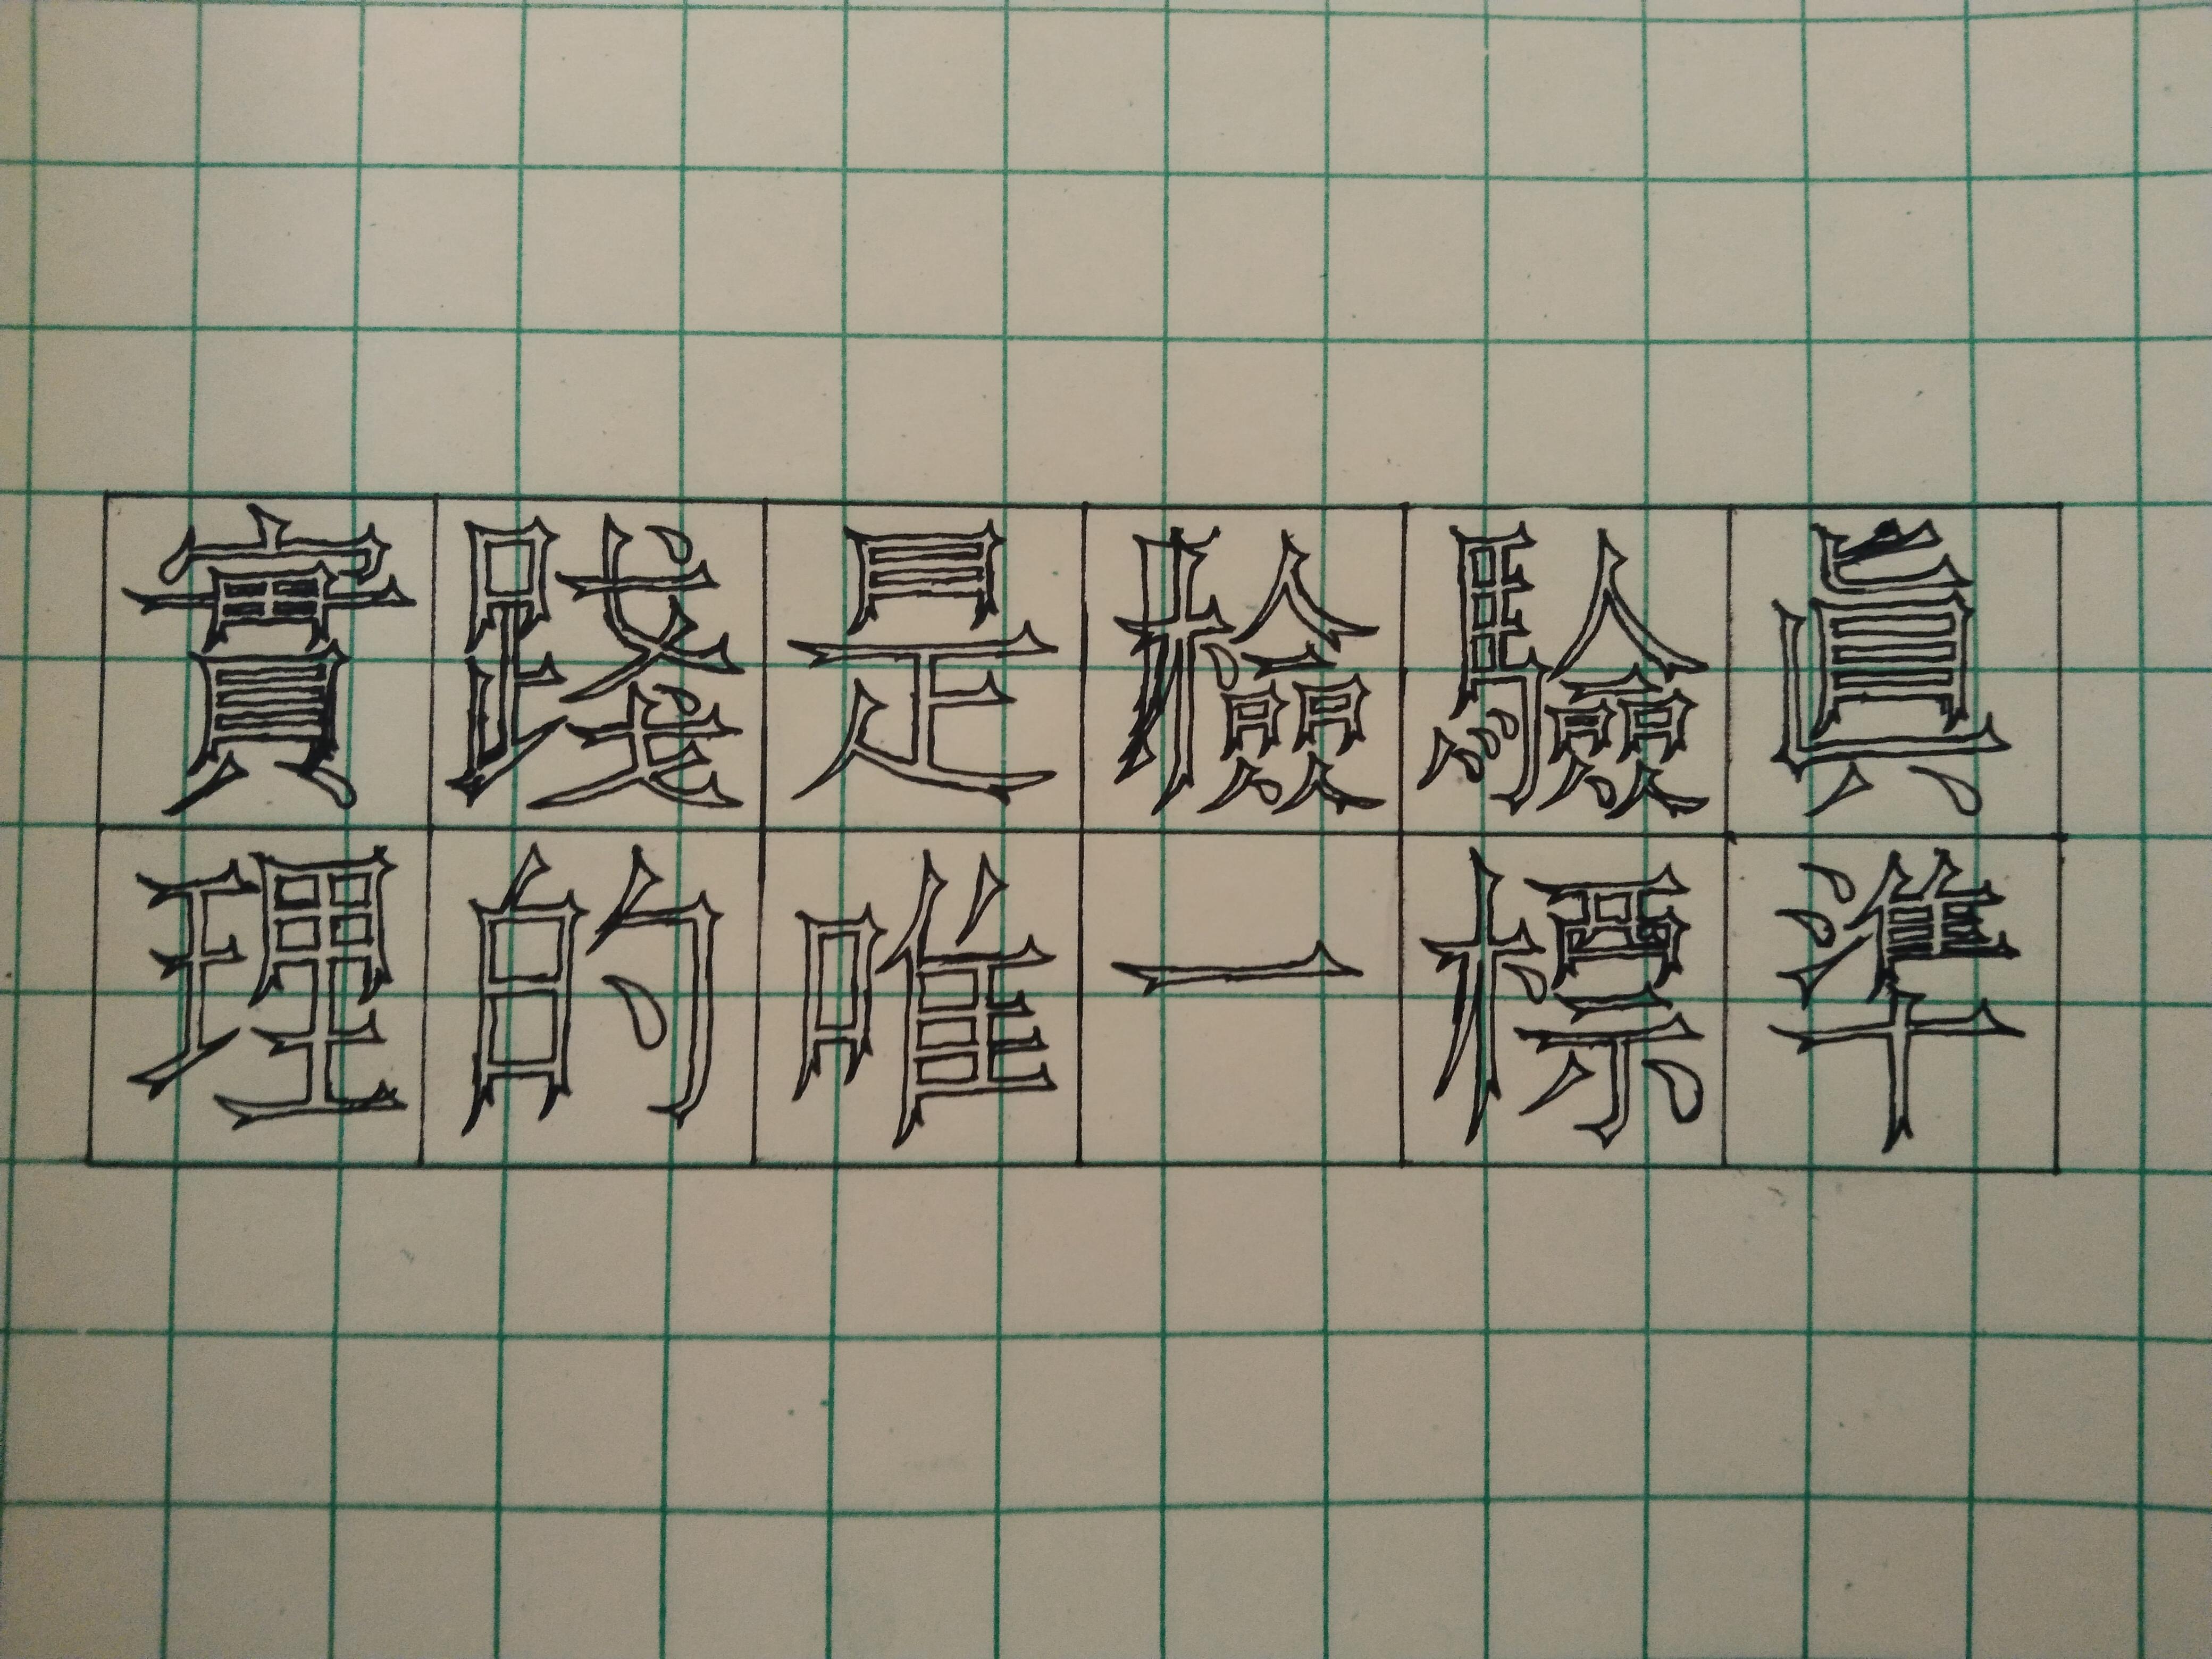 實踐是檢驗眞
理的唯一標準